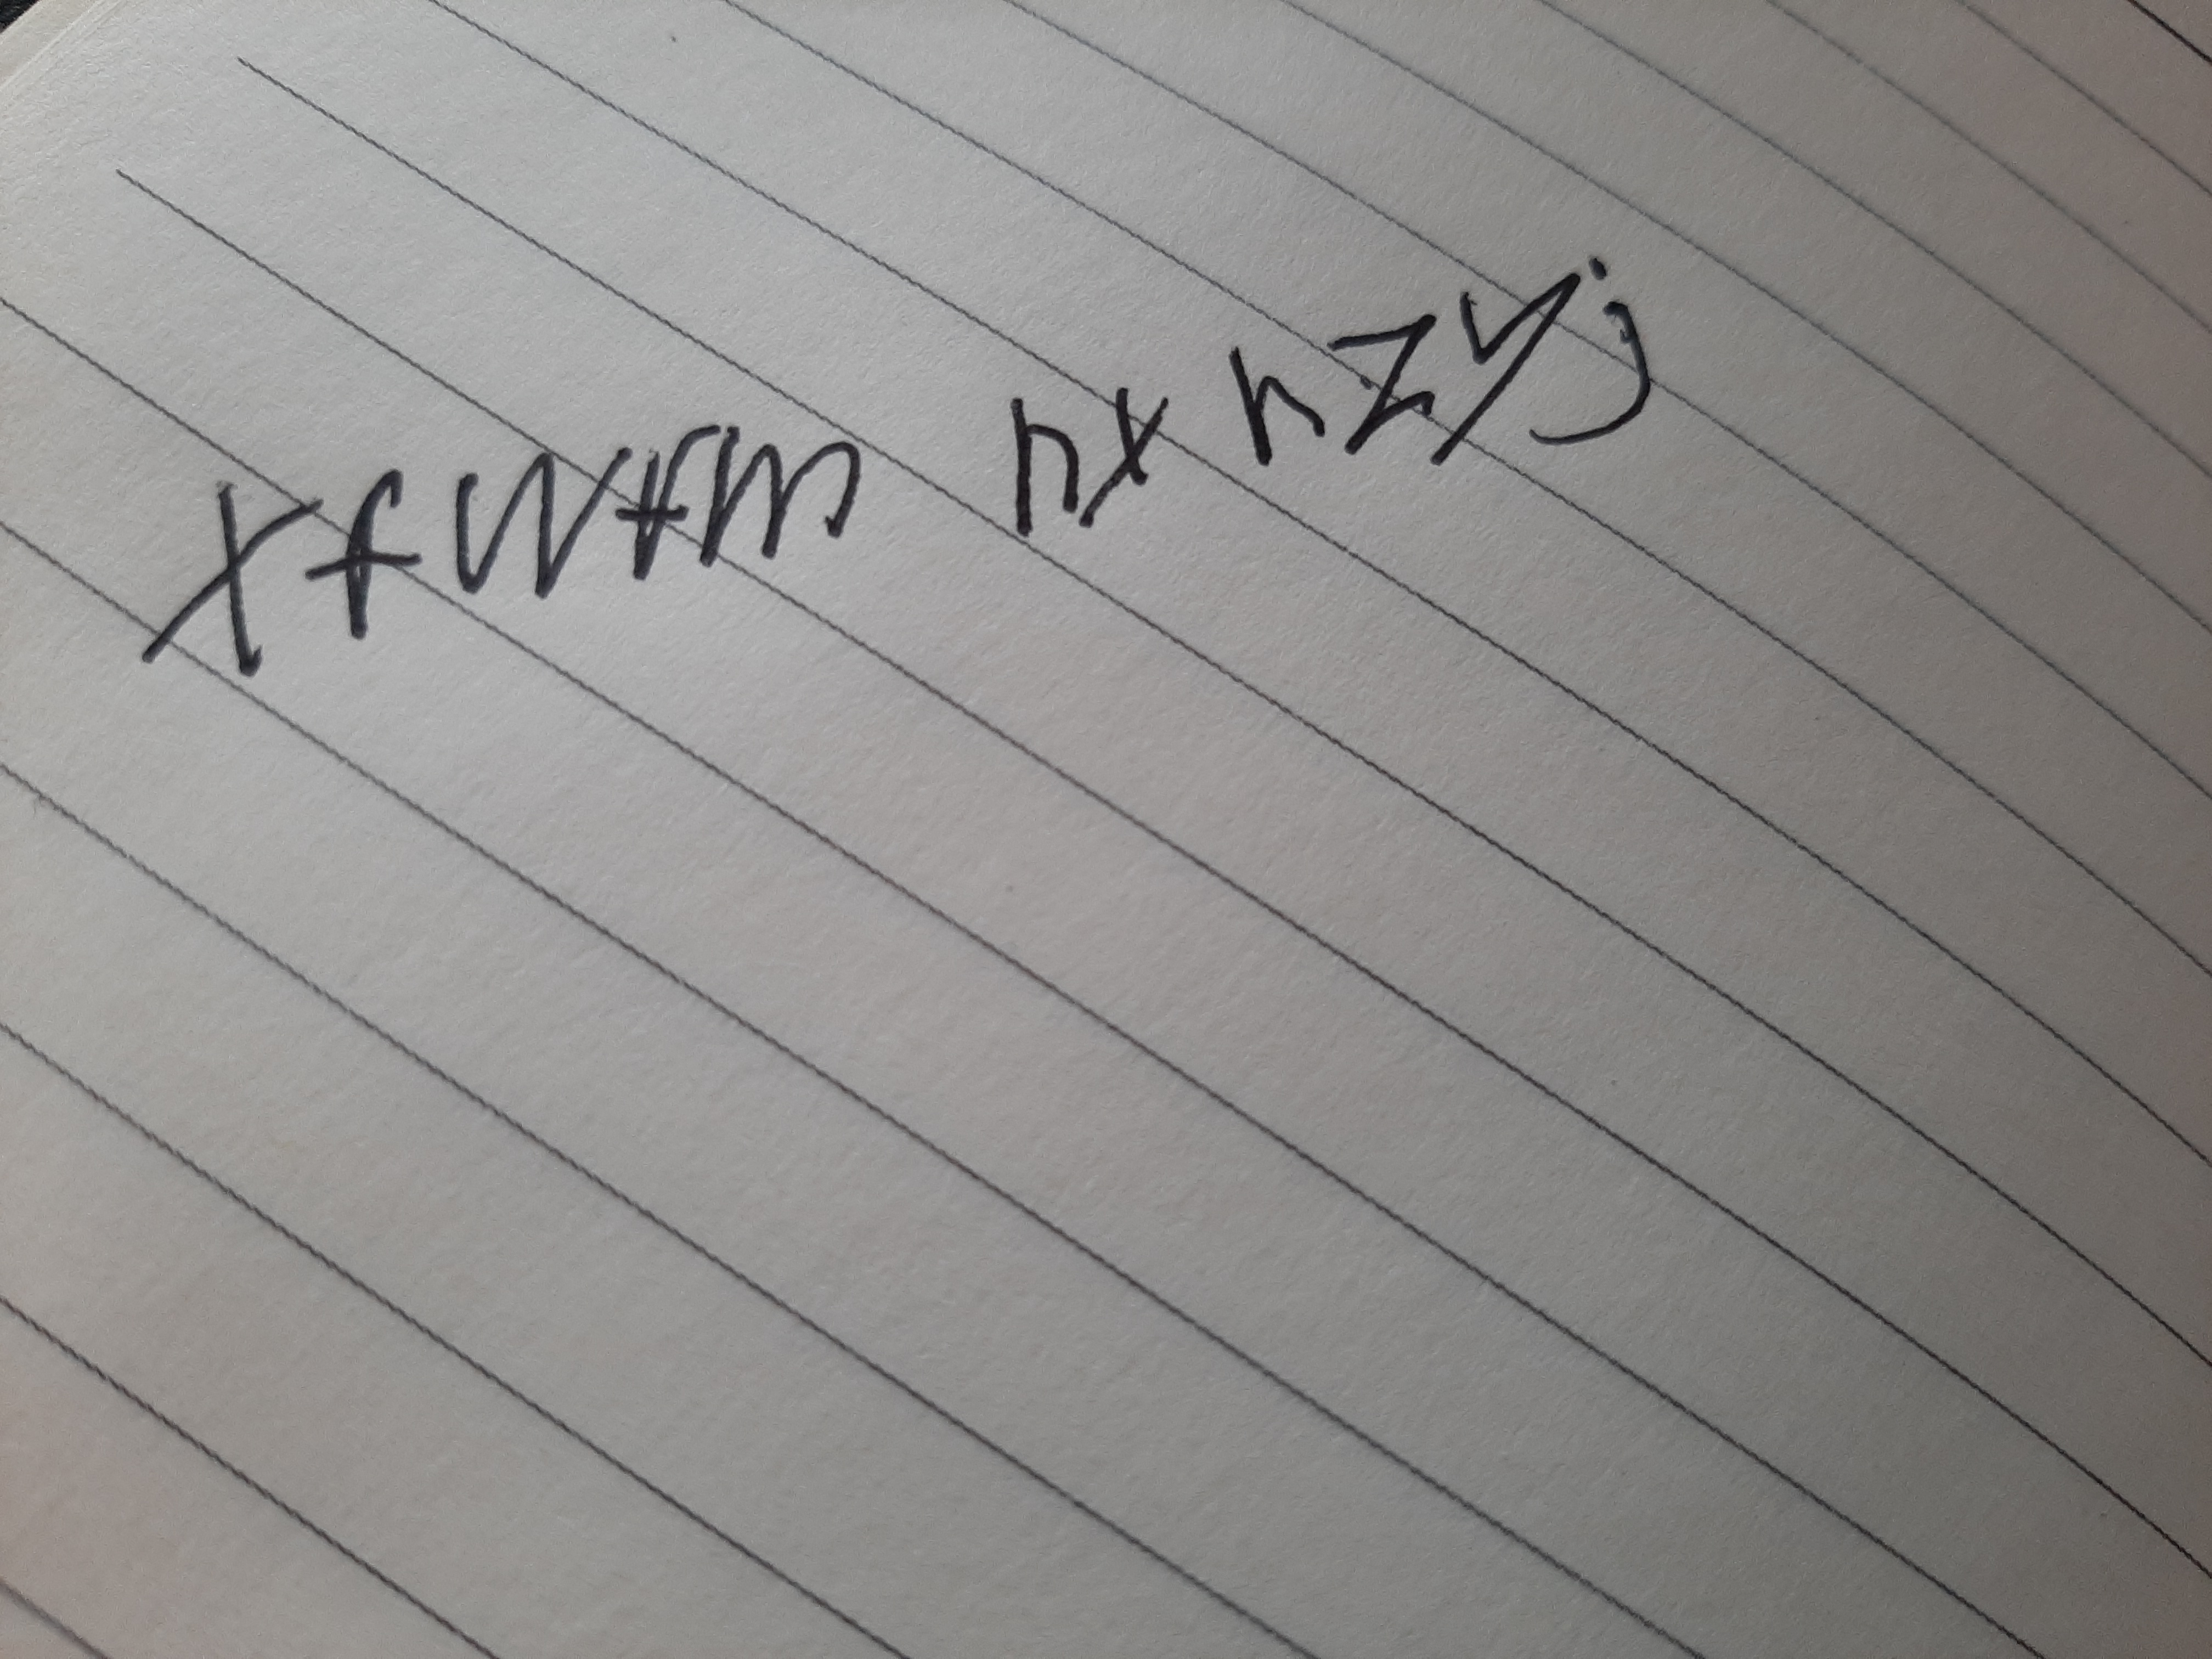 xfwfm nx hzyj